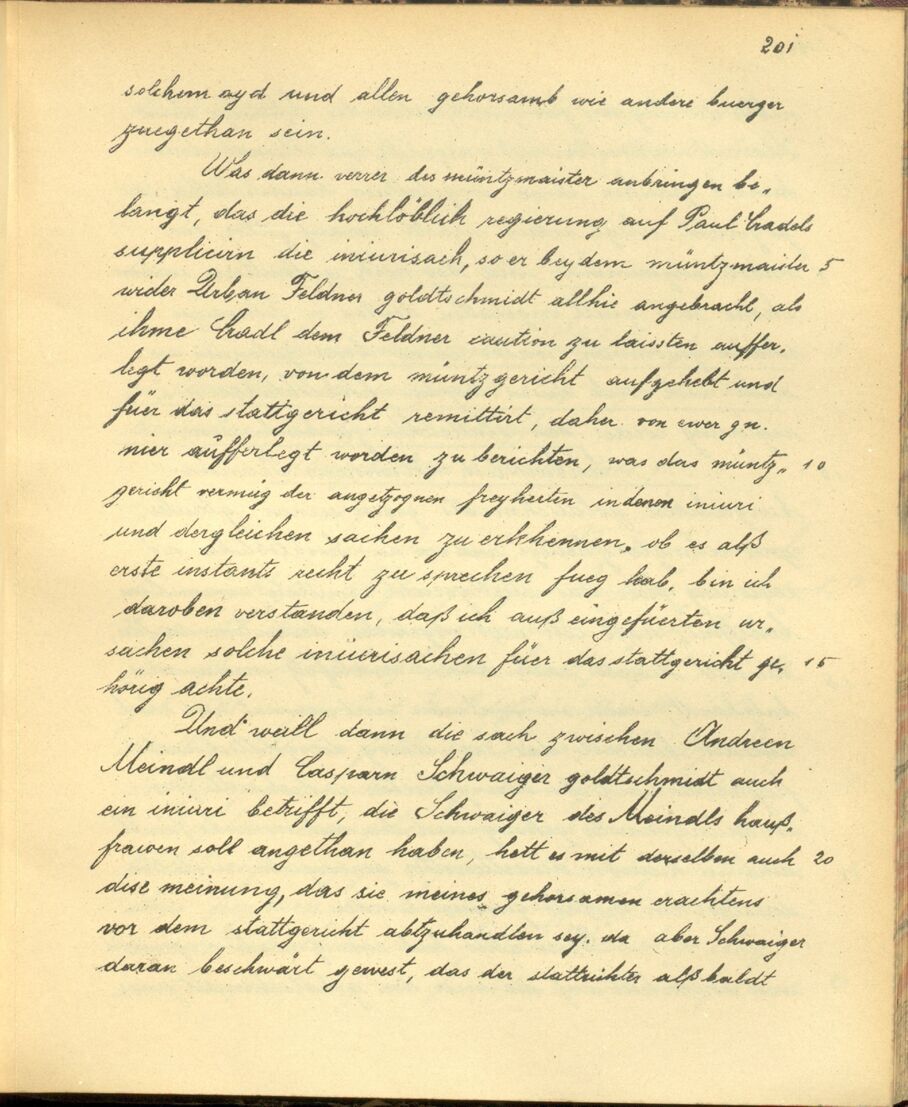 201
solchem ayd und allen gehorsamb wie andere buerger
zuegethan sein.
Was dann verrer des müntzmaister anbringen be„
langt, das die hochlöblich regierung auf Paul Cradels
supplicirn die iniurisach, so er bey dem müntzmaister 5
wider Urban Feldner goldtschmidt allhie angebracht, als
ihme Cradl dem Feldner caution zu laissten auffer„
legt worden, von dem müntzgericht aufgehebt und
füer das stattgericht remittirt, daher von ewer gn.
mier aufferlegt worden zu berichten, was das müntz„ 10
gericht vermüg der angetzognen freyheiten in denen iniuri
und dergleichen sachen zu erkhennen, ob es alß
erste instants recht zu sprechen fueg hab, bin ich
daroben verstanden, daß ich auß eingefüerten ur„
sachen solche iniurisachen füer das stattgericht ge„ 15
hörig achte.
Und weill dann die sach zwischen Andreen
Meindl und Casparn Schwaiger goldtschmidt auch
ein iniuri betrifft, die Schwaiger des Meindls hauß„
frawen soll angethan haben, hett es mit derselben auch 20
dise meinung, das sie meines gehorsamen erachtens
vor dem stattgericht abtzuhandlen sey. da aber Schwaiger
daran beschwärt gewest, das der stattrichter alßbaldt